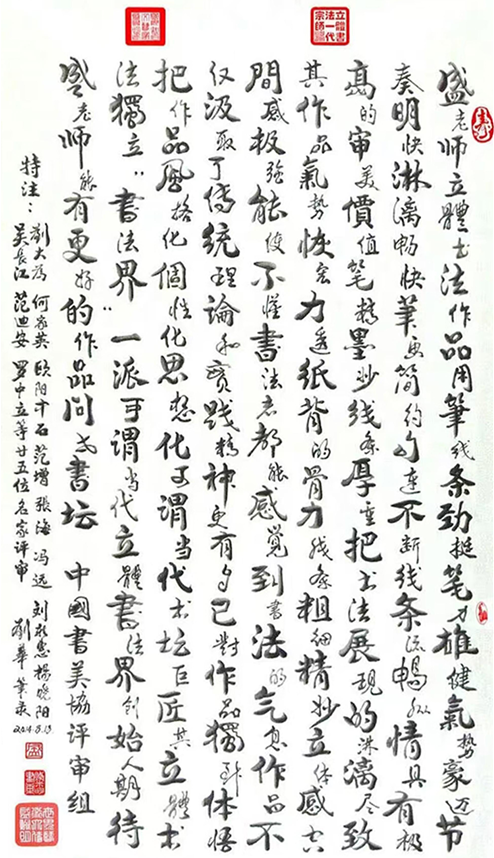 立體書法一代宗師
盛老师立體书法作品用筆线条劲挺笔力雄健氣势豪迈节
奏明快淋漓畅快筆画简约勾連不断线条流暢纵情具有极
高的审美價值笔精墨妙线条厚重把书法展現的淋漓尽致
其作品氣势恢宏力透纸背的骨力线条粗细精妙立体感空
間感极强能使不懂書法者都能感覺到書法的气息作品不
仅汲取了传统理論和实践精神更有自己對作品獨到体悟
把作品風格化個性化思想化可谓当代书坛巨匠其立體书
法獨立“書法界”一派可谓当代立體書法界创始人期待
盛老师能有更好的作品问世書坛 中國書美協评审组
特注：劉大为 何家英 欧阳中石 范增 張海 冯远 杨晓阳
吴長江 范迪安 罗中立等廿五位名家评审 劉華筆录